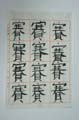 賽賽賽
賽賽賽
賽賽賽
賽賽賽